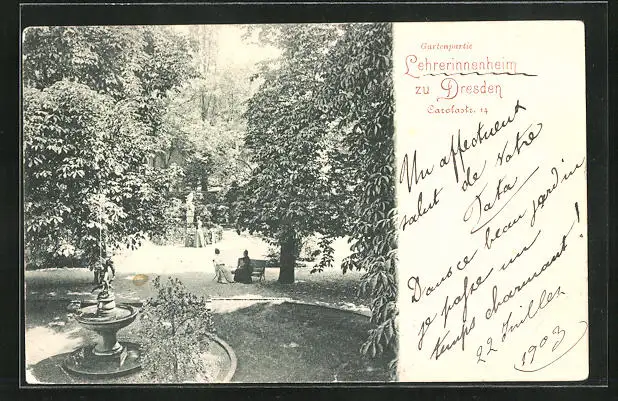 Gartenpartie
Lehrerinnenheim
zu Dresden
Carolastr. 14
Un affectueux
salut de votre
Tata
Dans ce beau jardin
je passe un
temps charmant!
22 Juillet
1903